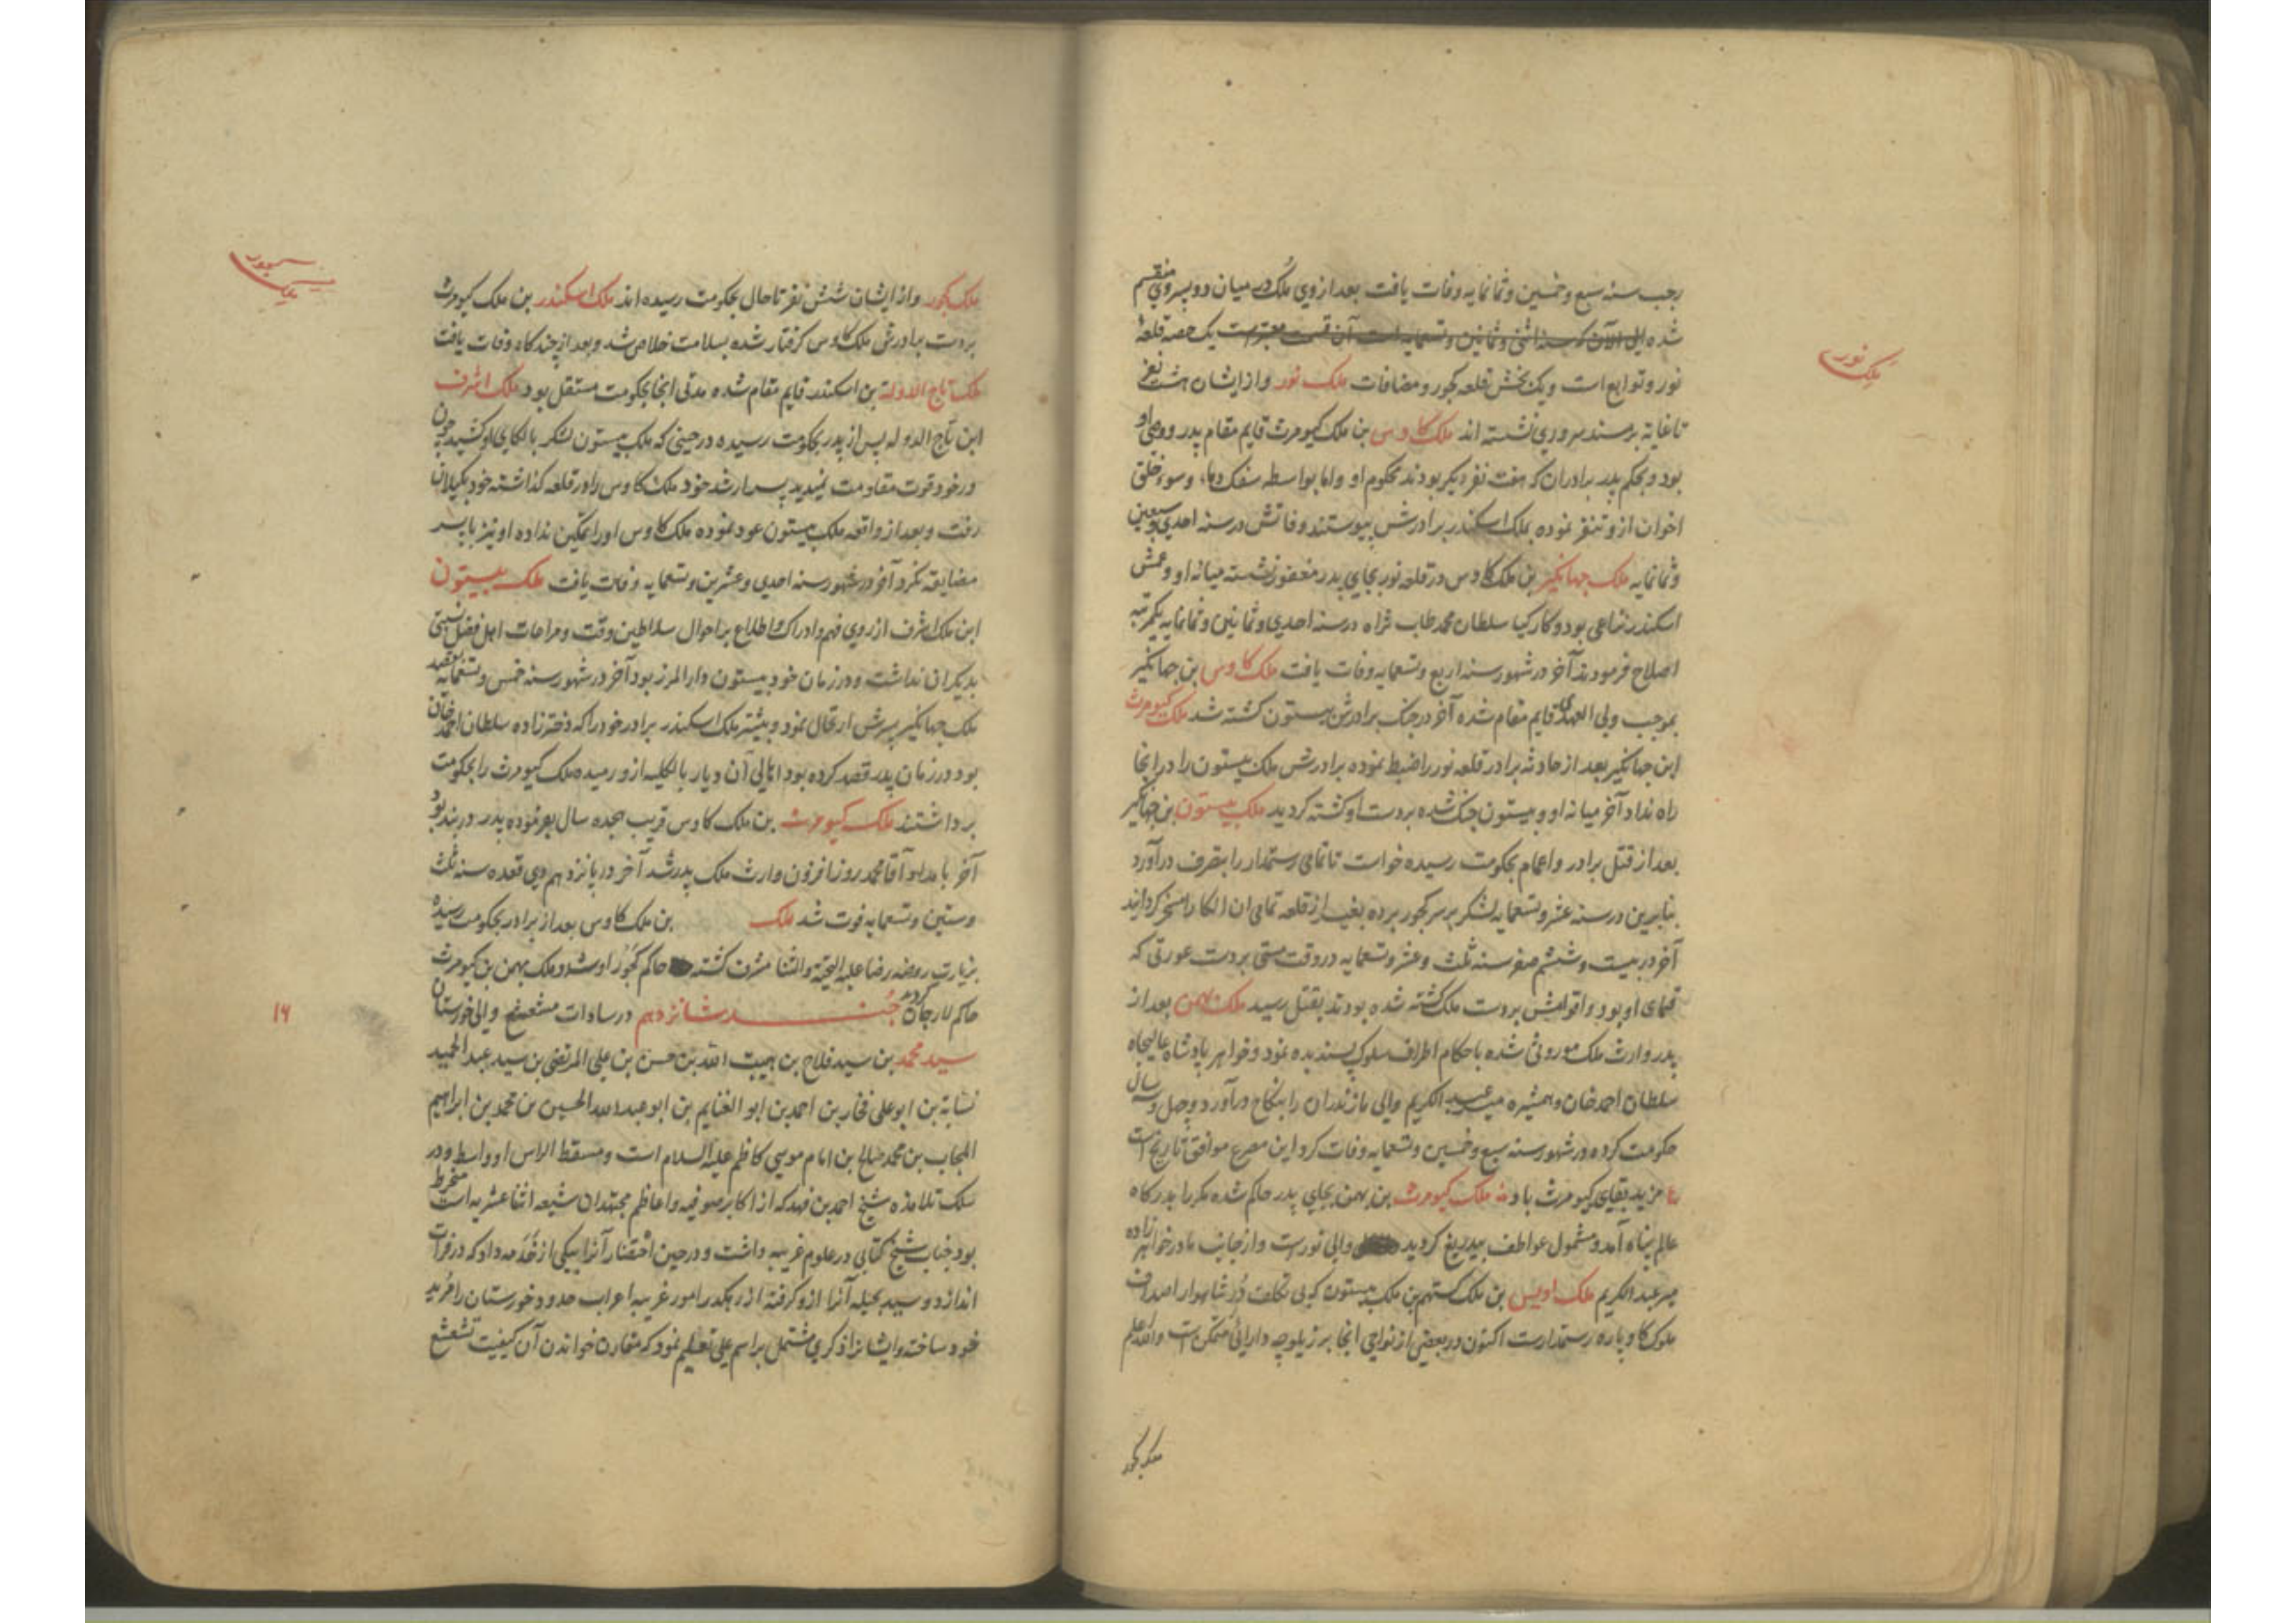 رجب سنه سبع و خمسین و ثمانمایه وفات یافت بعد از وی ملک در میان دو پسر وی منقسم
شده الی الآن که سنه اثنی و ثمانین و تسعمایه است آن قسمت معتبرست یک حصه قلعه
نور و توابع است و یک بخش قلعه کجور و مضافات ملک نور و از ایشان هشت نفر
تا غایه بر مسند سروری نشسته اند ملک کاوس بن ملک کیومرث قایم مقام پدر و وصی او
بود و بحکم پدر برادران که هفت نفر دیکر بودند محکوم او و اما بواسطه سفک دماء و سوء خلق
اخوان ازو تنفر نموده بملک اسکندر برادرش پیوستند وفاتش در سنه احدی و سبعین
و ثمانمایه ملک جهانکیر بن ملک کاوس در قلعه نور بجای پدر مغفور نشسته میانه او و عمش
اسکندر نزاعی بود و کارکیا سلطان محمد طاب ثراه در سنه احدی و ثمانین و ثمانمایه یکمرتبه
اصلاح فرمودند آخر در شهور سنه اربع و تسعمایه وفات یافت ملک کاوس بن جهانکیر
بموجب ولی العهدی قایم مقام شده آخر در جنک برادرش بیستون کشته شد ملک کیومرث
ابن جهانکیر بعد از حادثه برادر قلعه نور را ضبط نموده برادرش ملک بیستون را در انجا
راه نداد آخر میانه او و بیستون جنک شده بردست او کشته کردید ملک بیستون بن جهانکیر
بعد از قتل برادر و اعمام بحکومت رسیده خواست تا تمامی رستمدار را بتصرف درآورد
بنابرین در سنه عشر و تسعمایه لشکر بر سر کجور برده بغیر از قلعه تمامی ان الکا را مسخر کردانید
آخر در بیست و ششم صفر سنه ثلث و عشر و تسعمایه در وقت مستی بردست عورتی که
قمای او بود و اقوامش بردست ملک کشته شده بودند بقتل رسید ملک بهمن بعد از
پدر وارث ملک موروثی شده با حکام اطراف سلوک پسندیده نمود و خواهر پادشاه عالیجاه
سلطان احمد خان و همشیره میر عبد الکریم والی مازندران را بنکاح درآورد و چهل و سه سال
حکومت کرده در شهور سنه سبع و خمسین و تسعمایه وفات کرد این مصرع موافق تاریخ است
ع مزید بقای کیومرث باد ملک کیومرث بن بهمن بجای پدر حاکم شده مکررا بدرکاه
عالم پناه آمد و مشمول عواطف بیدریغ کردید والی نورست و از جانب مادر خواهر زاده
میر عبد الکریم ملک اویس بن ملک کستهم بن ملک بیستون که بی تکلف در شاهوار اصداف
ملوک کاوپاره رستمدارست اکنون در بعضی از نواحی انجا بر زیلوچه دارایی متمکن است والله اعلم
ملک کجور
ملک نور
ملک کجور و از ایشان شش نفر تا حال بحکومت رسیده اند ملک اسکندر بن ملک کیومرث
بردست برادرش ملک کاوس کرفتار شده بسلامت خلاص شد و بعد از چند کاه وفات یافت
ملک تاج الدوله بن اسکندر قایم مقام شده مدتی انجا بحکومت مستقل بود ملک اشرف
ابن تاج الدوله پس از پدر بحکومت رسیده در حینی که ملک بیستون لشکر بالکای او کشید چون
در خود قوت مقاومت نمیدید پسر ارشد خود ملک کاوس را در قلعه کذاشته خود بکیلان
رفت و بعد از واقعه ملک بیستون عود نموده ملک کاوس او را تمکین نداده او نیز با پسر
مضایقه نکرد آخر در شهور سنه احدی و عشرین و تسعمایه وفات یافت ملک بیستون
ابن ملک اشرف از روی فهم و ادراک و اطلاع بر احوال سلاطین وقت و مراعات اهل فضل نسبتی
بدیکران نداشت و در زمان خود بیستون دار المرز بود آخر در شهور سنه خمس و تسعمایه بقصد
ملک جهانکیر پسرش ارتحال نمود و بیشتر ملک اسکندر برادر خود را که دختر زاده سلطان احمد خان
بود در زمان پدر قصد کرده بود اهالی آن دیار بالکلیه ازو رمیده ملک کیومرث را بحکومت
برداشتند ملک کیومرث بن ملک کاوس قریب هجده سال بفرموده پدر در بند بود
آخر با مداد آقا محمد روزافزون وارث ملک پدر شد آخر در پانزدهم ذی قعده سنه ثلث
و ستین و تسعمایه فوت شد ملک بن ملک کاوس بعد از برادر بحکومت رسیده
بزیارت روضه رضا علیه التحیة والثنا مشرف کشته حاکم کجور او شد و ملک بهمن بن کیومرث
حاکم لارجان کردید جنـد شانزدهم در سادات مشعشع والی خوزستان
سید محمد بن سید فلاح بن هیبت الله بن حسن بن علی المرتضی بن سید عبد الحمید
نسابة بن ابو علی فخار بن احمد بن ابو الغنایم بن ابو عبد الله الحسین بن محمد بن ابراهیم
المجاب بن محمد صالح بن امام موسی کاظم علیه السلام است و مسقط الراس او واسط و در
سلک تلامذه شیخ احمد بن فهد که از اکابر صوفیه و اعاظم مجتهدان شیعه اثنا عشریه است منخرط
بود جناب شیخ کتابی در علوم غریبه داشت و در حین احتضار آنرا بیکی از خدمه داد که در فرات
اندازد و سید بحیله آنرا ازو کرفته از رهکذر امور غریبه اعراب حدود خوزستان را مرید
خود ساخته و ایشانرا ذکری مشتمل بر اسم علی تعلیم نمود که مقارن خواندن آن کیفیت تشعشع
ملک کجور
۱۶